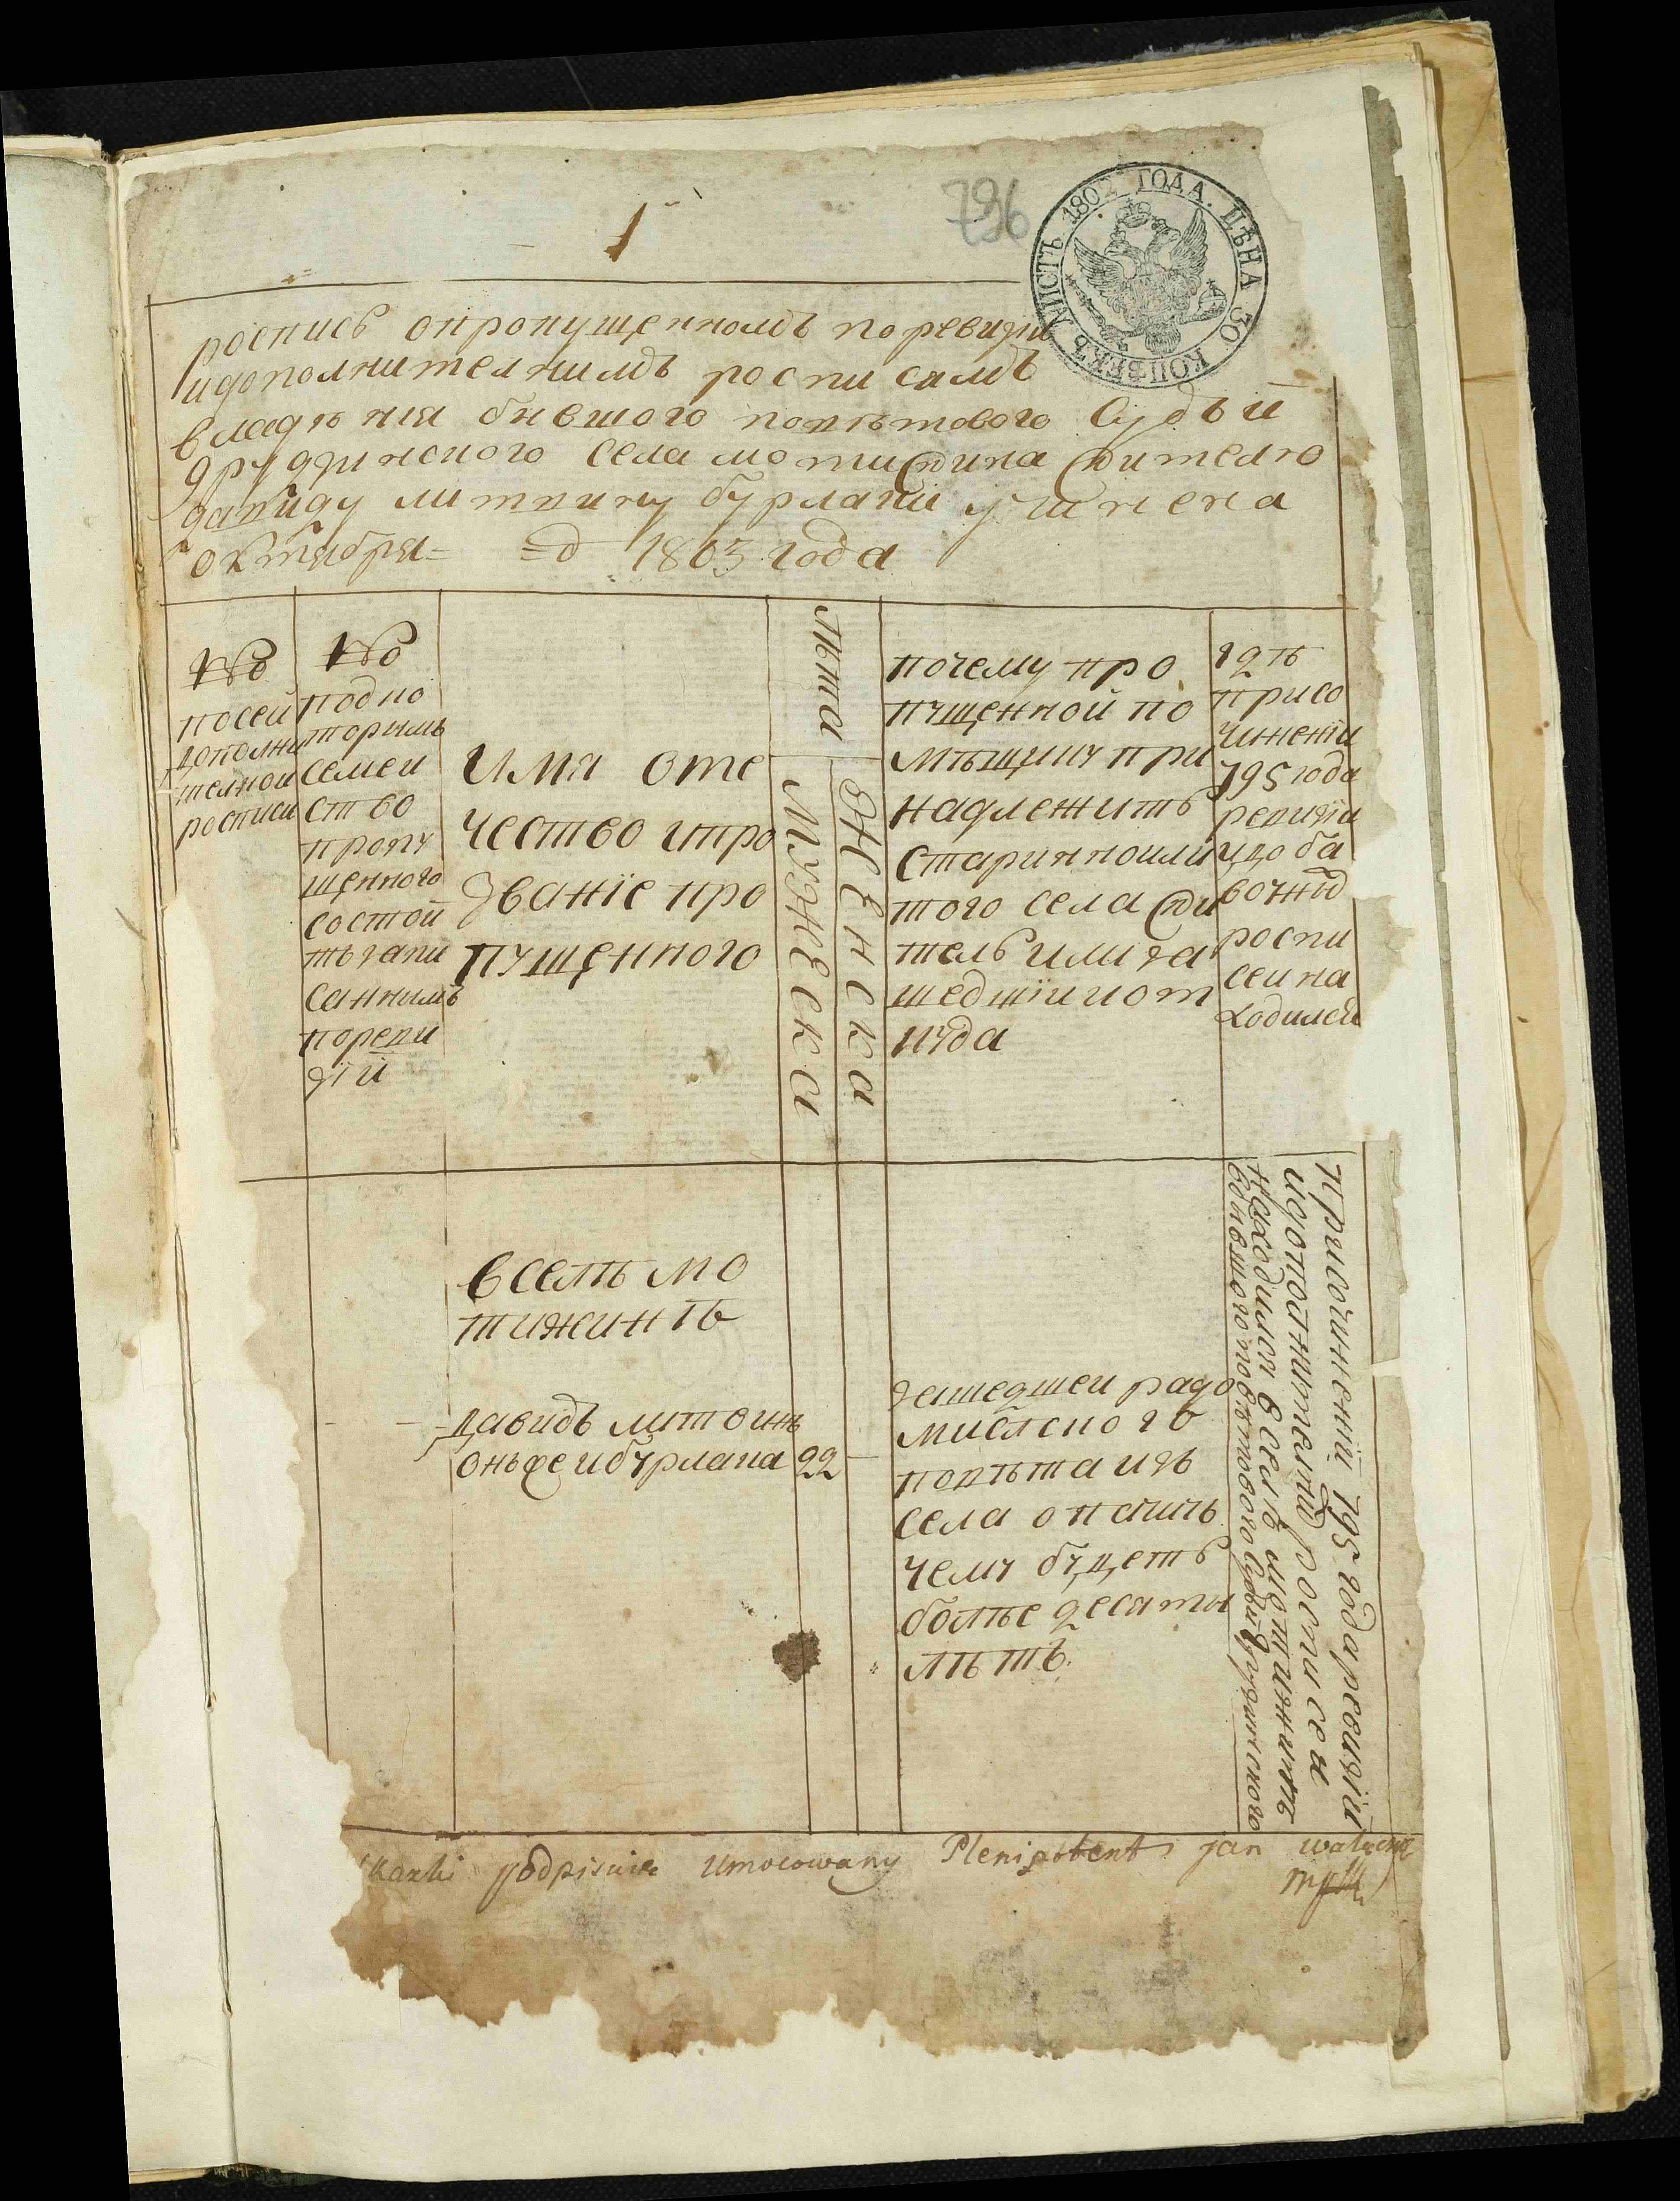 1
796
ЛИСТЪ 1802 ГОДА. ЦѢНА 30 КОПѢЕКЪ
роспись опропущенномъ поревизїи
идополнителнимъ росписамъ
владѣния бившого повѣтового Судьи
друздинского села мотижина жителю
давиду литвину бурлаки учинена
октября= =д 1803 года
№
посей
дополни
телной
росписи
№
подко
торымъ
семеи
ство
пропу
щенного
состой
тъ запи
саннимъ
поревы
зїи
имя оте
чество ипро
званїе про
пущенного
лѣта
мужеска
женска
почему про
пущенной по
мѣщику при
надлежить
старинноили
того села жи
тель или за
шедшїи иот
куда
гдѣ
присо
чиненїи
795 года
ревизїи
идоба
вочнїй
роспи
сеи на
ходилси
вселѣ мо
тижинѣ
давидъ литвинъ
онъже ибурлака 22
зашедшеи радо
мислского
повѣта изъ
села опачичь
чему будеть
болѣе десяты
лѣтъ
присочиненїи 795 года ревизїи
идополнителнїй росписеи
находился в селѣ мотижинѣ
вбившого повѣтового судьи друздинского
Skazki podpisuie Umocowany Plenipotent jan